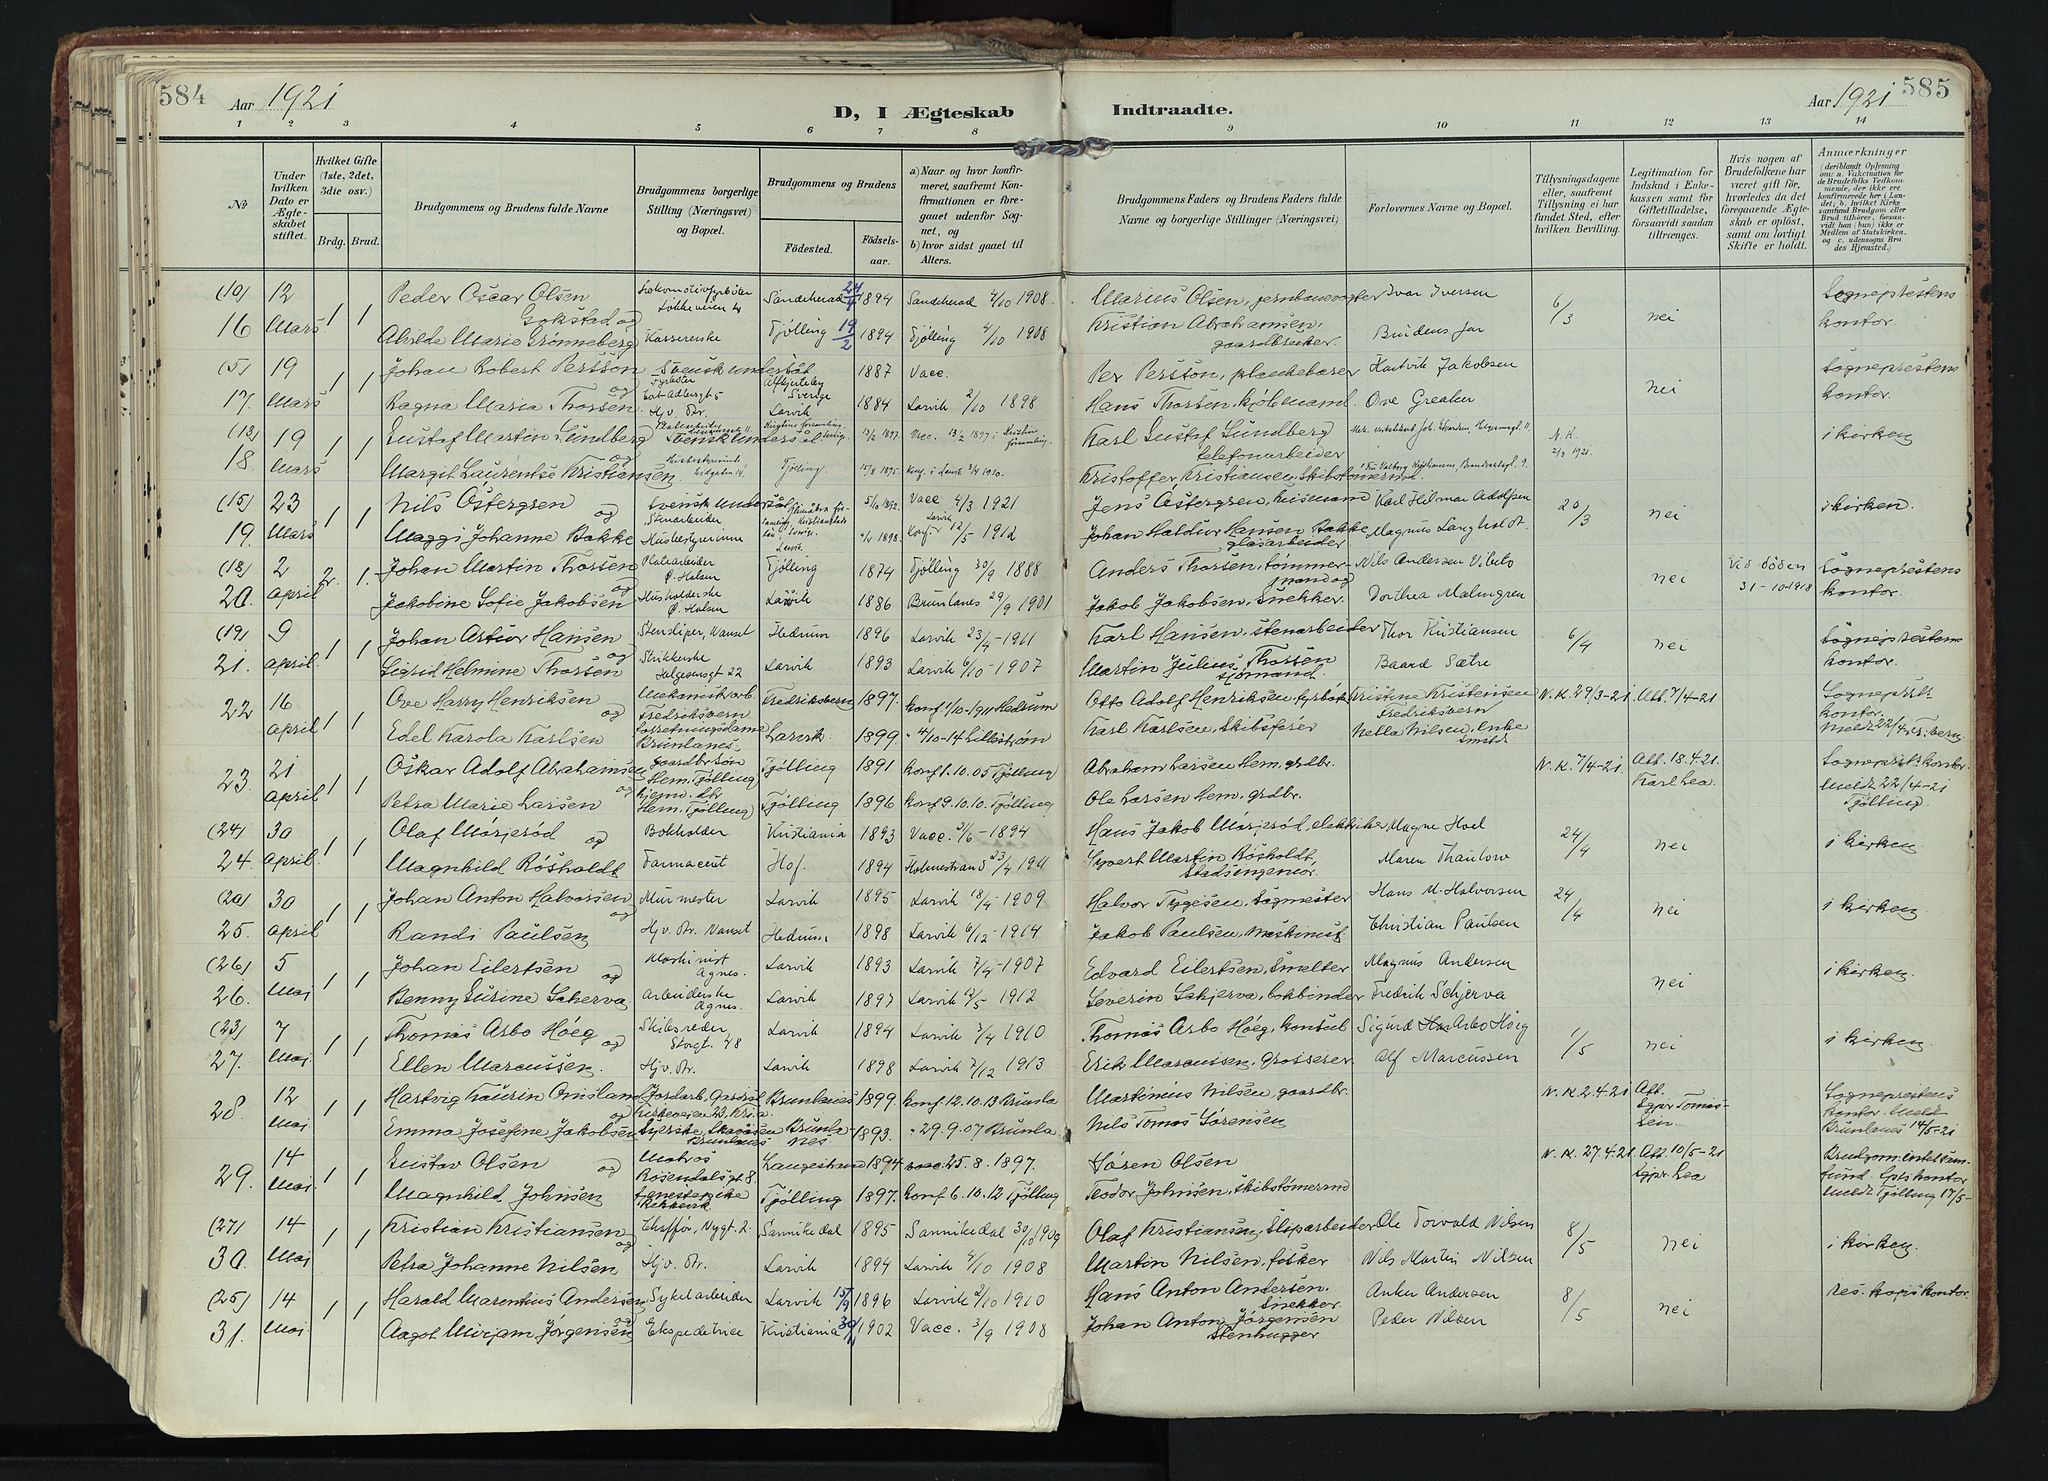 584 Aar 1921 D, I Ægteskab Indtraadte. Aar 1921 585
1 2 3 4 5 6 7 8 9 10 11 12 13 14
No
Under hvilken Dato er Ægteskabet stiftet.
Hvilket Gifte (1ste, 2det, 3die osv.)
Brdg. Brud.
Brudgommens og Brudens fulde Navne
Brudgommens borgerlige Stilling (Næringsvei) og Bopæl.
Brudgommens og Brudens
Födested. Födselsaar.
a) Naar og hvor konfirmeret, saafremt Konfirmationen er foregaaet udenfor Sognet, og
b) hvor sidst gaaet til Alters.
Brudgommens Faders og Brudens Faders fulde Navne og borgerlige Stillinger (Næringsvei)
Forlovernes Navne og Bopæl.
Tillysningsdagene eller, saafremt Tillysning ei har fundet Sted, efter hvilken Bevilling.
Legitimation for Indskud i Enkekassen samt for Giftetilladelse, forsaavidt saadan tiltrænges.
Hvis nogen af Brudefolkene har været gift för, hvorledes da det foregaaende Ægteskab er oplöst, samt om lovligt Skifte er holdt.
Anmærkninger
(deriblandt Oplysning om: a. Vakcination for de Brudefolks Vedkommende, der ikke ere konfirmerede her i Landet; b. hvilket Kirkesamfund Brudgom eller Brud tilhörer, forsaavidt han (hun) ikke er Medlem af Statskirken, og c. udensogns Brudes Hjemsted.)
(10) 12 1 1 Peder Oscar Olsen Gokstad og Sandeherad 24/4 1894 Sandeherad 4/10 1908 Marius Olsen, jernbanevogter Ivar Iversen 6/3 nei Sogneprestens
16 Mars Alvilde Marie Grønneberg Kassererske Tjølling 19/2 1894 Tjølling 4/10 1908 Kristian Abrahamsen, gaardbruker. Brudens far kontor.
(5) 19 1 1 Johan Robert Persson og Svensk undersåt 1887 Vacc. Per Persson, plankebærer Hartvik Jakobsen nei Sogneprestens
17. Mars Ragna Maria Thorsen Hjv. Dr. Larvik 1884 Larvik 2/10 1898 Hans Thorsen, kjøbmand. Ove Greaker kontor.
(13) 19 1 1 Gustaf Martin Lundberg og Svensk undersåt 13/2 1897. Vacc. 13/2 1897 Karl Gustaf Lundberg telefonarbeider N.K. 2/3 1921. i kirken
18. Mars Margit Laurentse Kristiansen Tjølling. Konf. i Larvik 2/4 1910. Kristoffer Kristiansen, Skibstømmermand
(15) 23 1 1 Nils Östergren og Svensk undersåt Stenarbeider 5/10 1892. Vacc 4/3 1921 Larvik Jens Östergren, husmand Karl Hilmar Adolfsen 20/3 nei i kirken.
19. Mars Maggi Johanne Bakke Husbestyrerinne Larvik. 1898. Konf. 12/5 1912 Johan Haldur Hansen Bakke glasarbeider Magnus Langholdt.
(18) 2 2. 1. Johan Martin Thorsen og Platearbeider Ø. Halsen Tjølling 1874 Tjølling 30/9 1888 Anders Thorsen, tømmermand og Nils Andersen Vibeto nei Ved døden Sogneprestens
20. April Jakobine Sofie Jakobsen Husholderske Ø. Halsen Larvik 1886 Brunlanes 29/9 1901 Jakob Jakobsen, Snekker. Dorthea Malmgren 31-10-1918 kontor.
(19) 9 1 1 Johan Artur Hansen og Stensliper, Nanset Hedrum 1896 Larvik 23/4-1911 Karl Hansen, stenarbeider Thor Kristiansen 6/4 nei Sogneprestens
21. April. Sigrid Helmine Thorsen Strikkerske Helgesensgt 22 Larvik 1893 Larvik 6/10-1907 Martin Julius Thorsen sjømand. Baard Sætre kontor.
22 16 April 1 1 Ove Harry Henriksen og Mekanisk arb. Fredriksvern Fredriksvern 1897. Konf 1/10-1911 Hedrum Otto Adolf Henriksen, fyrbøter Kristine Kristensen Fredriksvern N.K. 29/3-21 Att. 7/4-21 Sogneprstk kontor.
Edel Karola Karlsen Forretningsdame Brunlanes. Larvik. 1899. " 4/10-14 Lillestrøm Karl Karlsen, Skibsfører Nella Nilsen, enke Meldt 22/4 Fr.vern
23. 21 April 1 1 Oskar Adolf Abrahamsen og Gaardbr.søn Hem, Tjølling Tjølling 1891 Konf 1.10.05 Tjølling Abraham Larsen Hem. grdbr. N.K. 7/4-21 Att. 18.4.21. Karl Lea. Sogneprst. kontor
Petra Marie Larsen Hem. Tjølling Tjølling 1896 Konf 9.10.10. Tjølling Ole Larsen Hem, grdbr. Meldt 22/4-21 Tjølling.
(24) 30 1 1 Olaf Mörjeröd og Bokholder Kristiania 1893 Vacc. 2/6-1894 Hans Jakob Mörjeröd, elektriker Magne Hoel 24/4 nei i kirken
24. April. Magnhild Rösholdt Farmaceut Hof. 1894 Holmestrand 23/4 1911 Syvert Martin Rösholdt, Stadsingeniør. Maren Thaulow
(20) 30 1 1 Johan Anton Halvorsen og Murmester Larvik 1895 Larvik 18/4-1909 Halvor Tygesen, Sagmester Hans M. Halvorsen 24/4 nei i kirken.
25. April Randi Paulsen Hjv. Dr. Nanset Hedrum 1898 Larvik 6/12-1914 Jakob Paulsen, Maskinist Christian Paulsen
(26) 5 1 1 Johan Eilertsen og Maskinist Agnes. Larvik 1893 Larvik 7/4-1907 Edvard Eilertsen, Smelter Magnus Andersen nei i kirken.
26. Mai Benny Surine Schjerva Arbeiderske Agnes. Larvik 1897 Larvik 9/5 1912 Severin Schjerva, bokbinder Fredrik Schjerva
(23) 7 1 1 Thomas Arbo Høeg og Skibsreder, Storgt. 48 Larvik 1894 Larvik 3/4 1910 Thomas Arbo Høeg, konsul Sigurd Arbo Høeg 1/5 nei i kirken
27. Mai. Ellen Marcussen. Hjv. Dr. Larvik 1898 Larvik 7/12 1913 Erik Marcussen, Grosserer Alf Marcussen
28. 12 Mai. 1 1 Hartvig Laurin Omsland og Jordarb. Kirkeveien 23, Kr.a. Brunlanes 1899. Konf 12.10.13 Brunla Martinius Nilsen gaardbr. N.K. 2.4.21 Att. Sgpr Tomassen. Sogneprestens kontor. Meldt
Emma Josefine Jakobsen Syerske, Brunlanes Brunlanes 1893. " 29.9.07 Brunla Nils Tomas Sørensen Brunlanes 14/5-21
29. 14 Mai. 1 1 Gustav Olsen og Matros Rosendalsgt 8. Langestrand 1894 vacc. 25.8.1897. Søren Olsen N.K. 27.4.21. Att. 10/5-21 Sgpr. Lea
Magnhild Johnsen Tjølling 1897. Konf 6.10.12 Tjølling Teodor Johnsen, skibstømermd Meldt Tjølling 17/5-
(27) 14 1 1 Kristian Kristiansen og Chaffør, Nygt. 2. Sannikedal 1895 Sannikedal 30/10 1909 Olaf Kristiansen, Sliparbeider Ole Torvald Nilsen 8/5 nei i kirken.
30. Mai Petra Johanne Nilsen Hjv. Dr. Larvik 1894 Larvik 4/10 1908 Martin Nilsen, fisker Nils Martin Nilsen
(25) 14 1 1 Harald Marentius Andersen og Sykelarbeider Larvik 15/9 1896 Larvik 2/10 1910 Hans Anton Andersen. Snekker. Anker Andersen 8/5 nei res. kap's kontor.
31. Mai. Aagot Mirjam Jørgensen Ekspeditrice Kristiania 30/1 1902 Vacc. 3/9 1908 Johan Anton Jörgensen Stenhugger Peder Nilsen